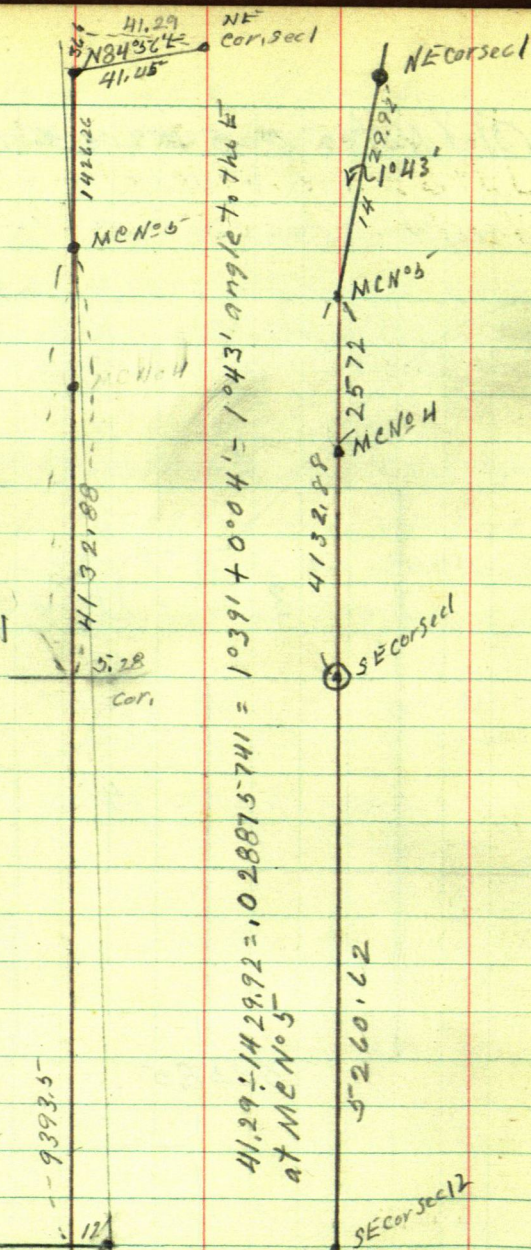 41.29
NE
Cor, sec 1
N84°56'E
41.45
3.66
1426.26
MC No 5
MC No 4
4132.88
5.28
Cor.
9393.5
12
41.29 ÷ 1429.92 = .028875741 = 1°39' + 0°04' = 1°43' angle to the E
at MC No 5
NE cor sec 1
1429.92
1°43'
MC No 5
2572
MC No 4
4132.88
SE cor sec 1
5260.62
SE cor sec 12